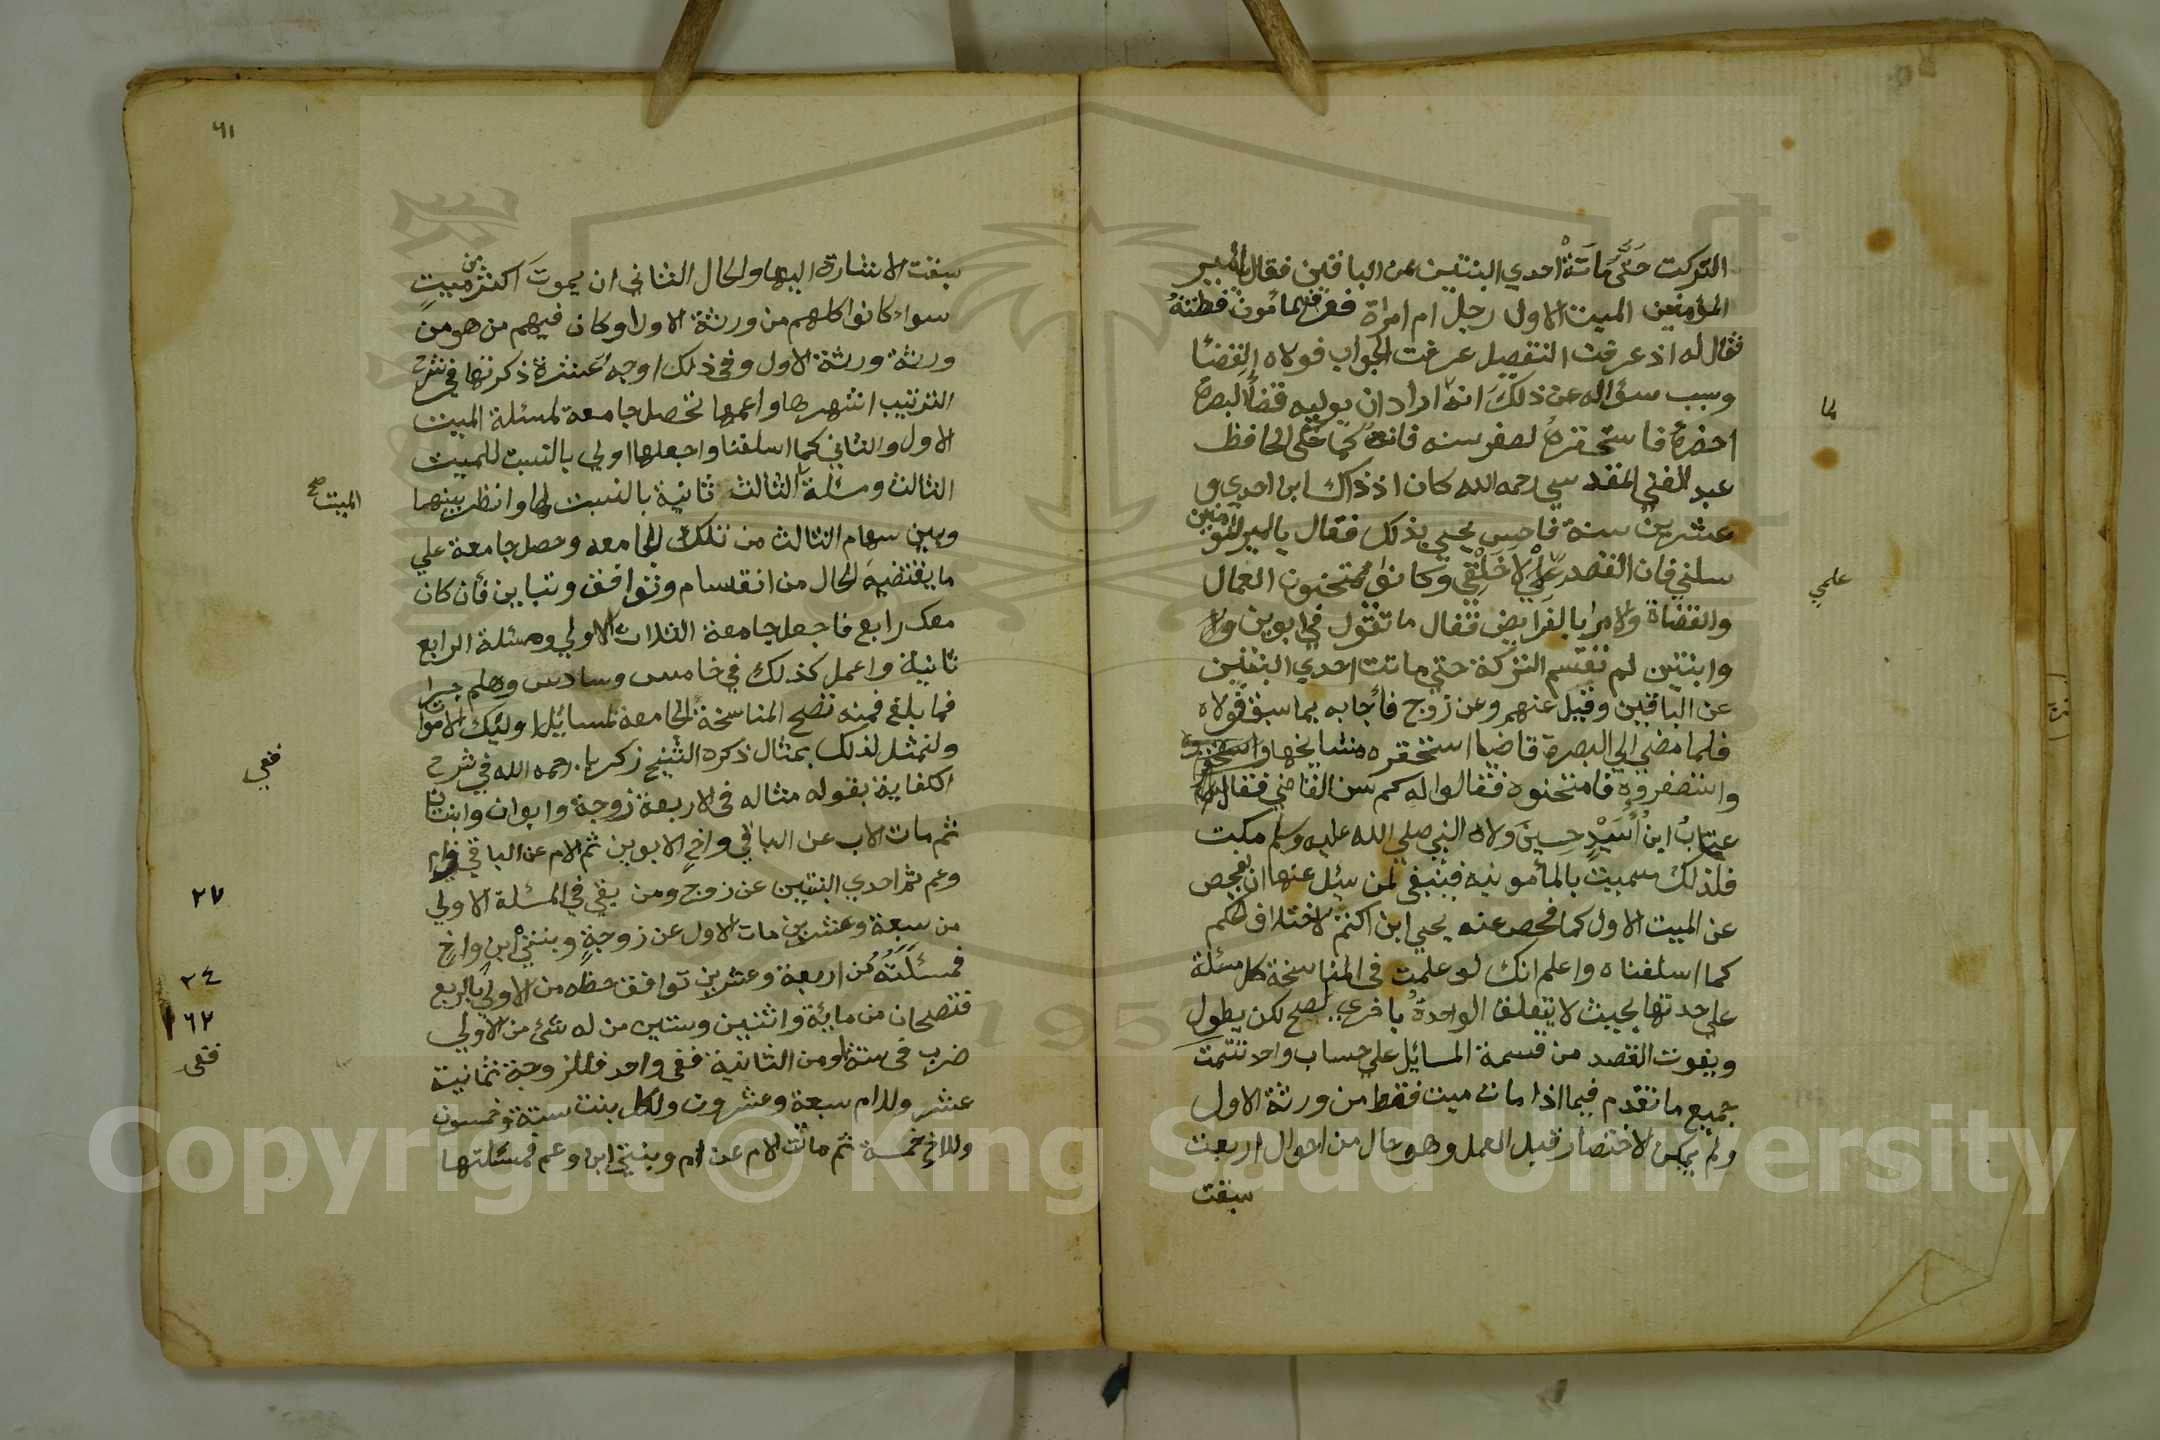 التركت حتى ماتة احدي البنتين عن الباقين فقال يا أمير
المؤمنين الميت الاول رجل ام امراة فعرف المأمون فطنته
فقال له اذ عرفت التفصيل عرفت الجواب فولاه القضا
وسبب سؤاله عن ذلك انه اراد ان يوليه قضا البصرة
احضره فاستحقره لصغر سنه فانه كما حكى الحافظ
عبد الغني المقدسي رحمه الله كان اذ ذاك ابن احدي و
عشرين سنة فاحس يحيي بذلك فقال يا امير المؤمنين
سلني فان القصد علمي لا خلقي وكانوا يمتحنون العمال
والقضاة والامرا بالفرايض فقال ما تقول في ابوين و
وابنتين لم تقسم التركة حتى ماتت احدي البنتين
عن الباقين وقيل عنهم وعن زوج فأجابه بما سبق فولاه
فلما مضي الي البصرة قاضيا استحقره مشايخها
واستصغروه فامتحنوه فقالوا له كم سن القاضي فقال
عتاب ابن أسيد حين ولاه النبي صلي الله عليه وسلم مكت
فلذلك سميت بالمأمونيه فينبغي لمن سئل عنها ان يفحص
عن الميت الاول كما فحص عنه يحيي ابن اكثم لاختلاف الحكم
كما اسلفناه واعلم انك لو علمت في المناسخة كل مسئلة
علي حدتها بحيث لا يتعلق الواحدة باخري لصح لكن يطول
ويفوت القصد من قسمة المسائل علي حساب واحد تتمت
جميع ما تقدم فيما اذا مات ميت فقط من ورثة الاول
ولم يمكن الاختصار قبل العمل وهو حال من احوال اربعت
سبقت
لما
علمي
٦١
سبقت الاشارة اليها والحال الثاني ان يموت اكثر من ميت
سواء كانوا كلهم من ورثة الاول او كان فيهم من هو من
ورثة ورثة الاول وفي ذلك اوجه عشرة ذكرتها في شرح
الترتيب اشهرها واعمها تحصل جامعة لمسئلة الميت
الاول والثاني كما اسلفنا واجعلها اولي بالنسبت للميت
الثالث ومسئلة الثالث ثانية بالنسبت لها وانظر بينها
وبين سهام الثالث من تلك الجامعه وحصل جامعة علي
ما يقتضيه الحال من انقسام وتوافق وتباين فأن كان
معك رابع فاجعل جامعة الثلاث الاولي ومسئلة الرابع
ثانية واعمل كذلك في خامس وسادس وهلم جرا
فما بلغ فمنه تصح المناسخة الجامعة لمسائل اولئك الاموات
ولنمثل لذلك بمثال ذكره الشيخ زكريا رحمه الله في شرح
الكفاية بقوله مثاله في الاربعة زوجة وابوان وابنتان
ثم مات الاب عن الباقي واخ لابوين ثم الام عن الباقي وام
وعم ثم احدي البنتين عن زوج ومن بقي في المسئلة الاولي
من سبعة وعشرين مات الاول عن زوجة وبنتي ابن واخ
فمسئلته من اربعة وعشرين توافق حظه من الاولي بالربع
فتصحان من مائة واثنين وستين من له شئ من الاولي
ضرب في ستة او من الثانية ففي واحد فللزوجة ثمانية
عشر وللام سبعة وعشرون ولكل بنت ستة وخمسون
وللاخ خمسة ثم ماتت الام عن ام وبنتي ابن وعم فمسئلتها
الميت صح
ففي
٢٧
٢٤
١٦٢
ففي
Copyright © King Saud University
1957